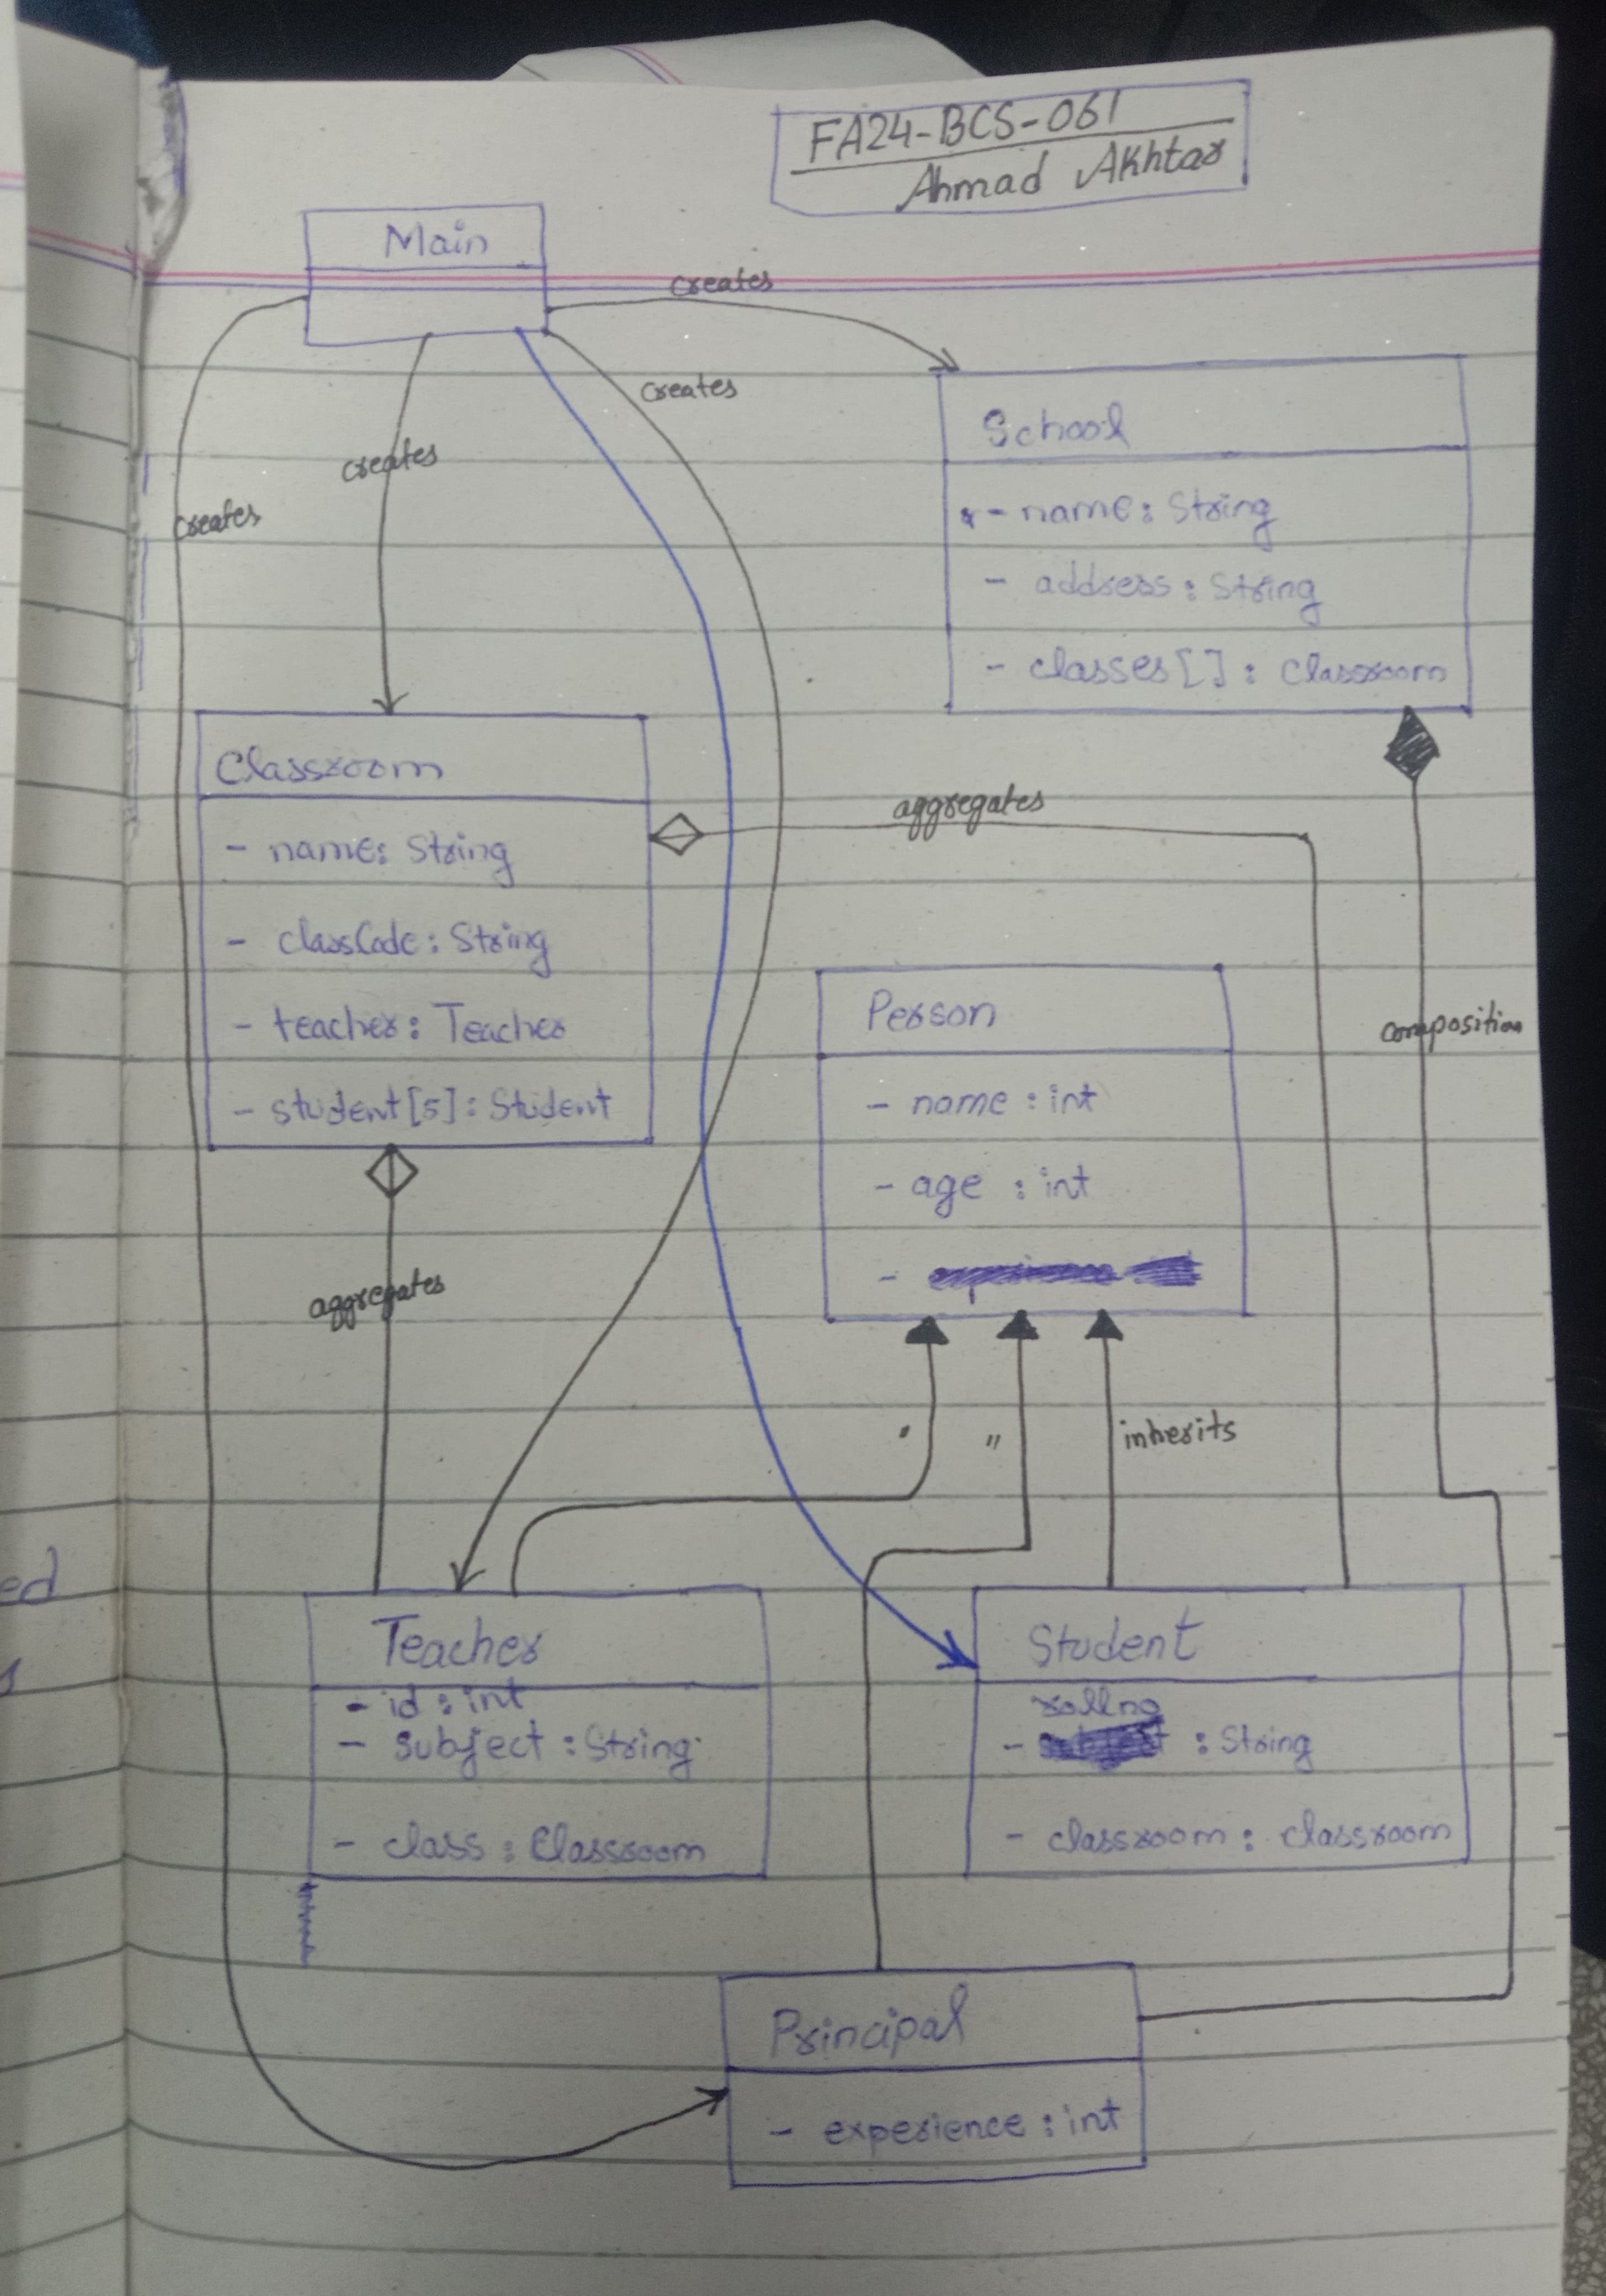 FA24-BCS-061
Ahmad Akhtar
Main
creates
creates
creates
creates
School
- name: String
- address: String
- classes[]: Classroom
Classroom
- name: String
- classCode: String
- teacher: Teacher
- student[5]: Student
aggregates
composition
Person
- name: int
- age: int
-
aggregates
"
inherits
Teacher
- id: int
- subject: String
- class: Classroom
Student
rollno
- : String
- classroom: classroom
Principal
- experience: int
ed